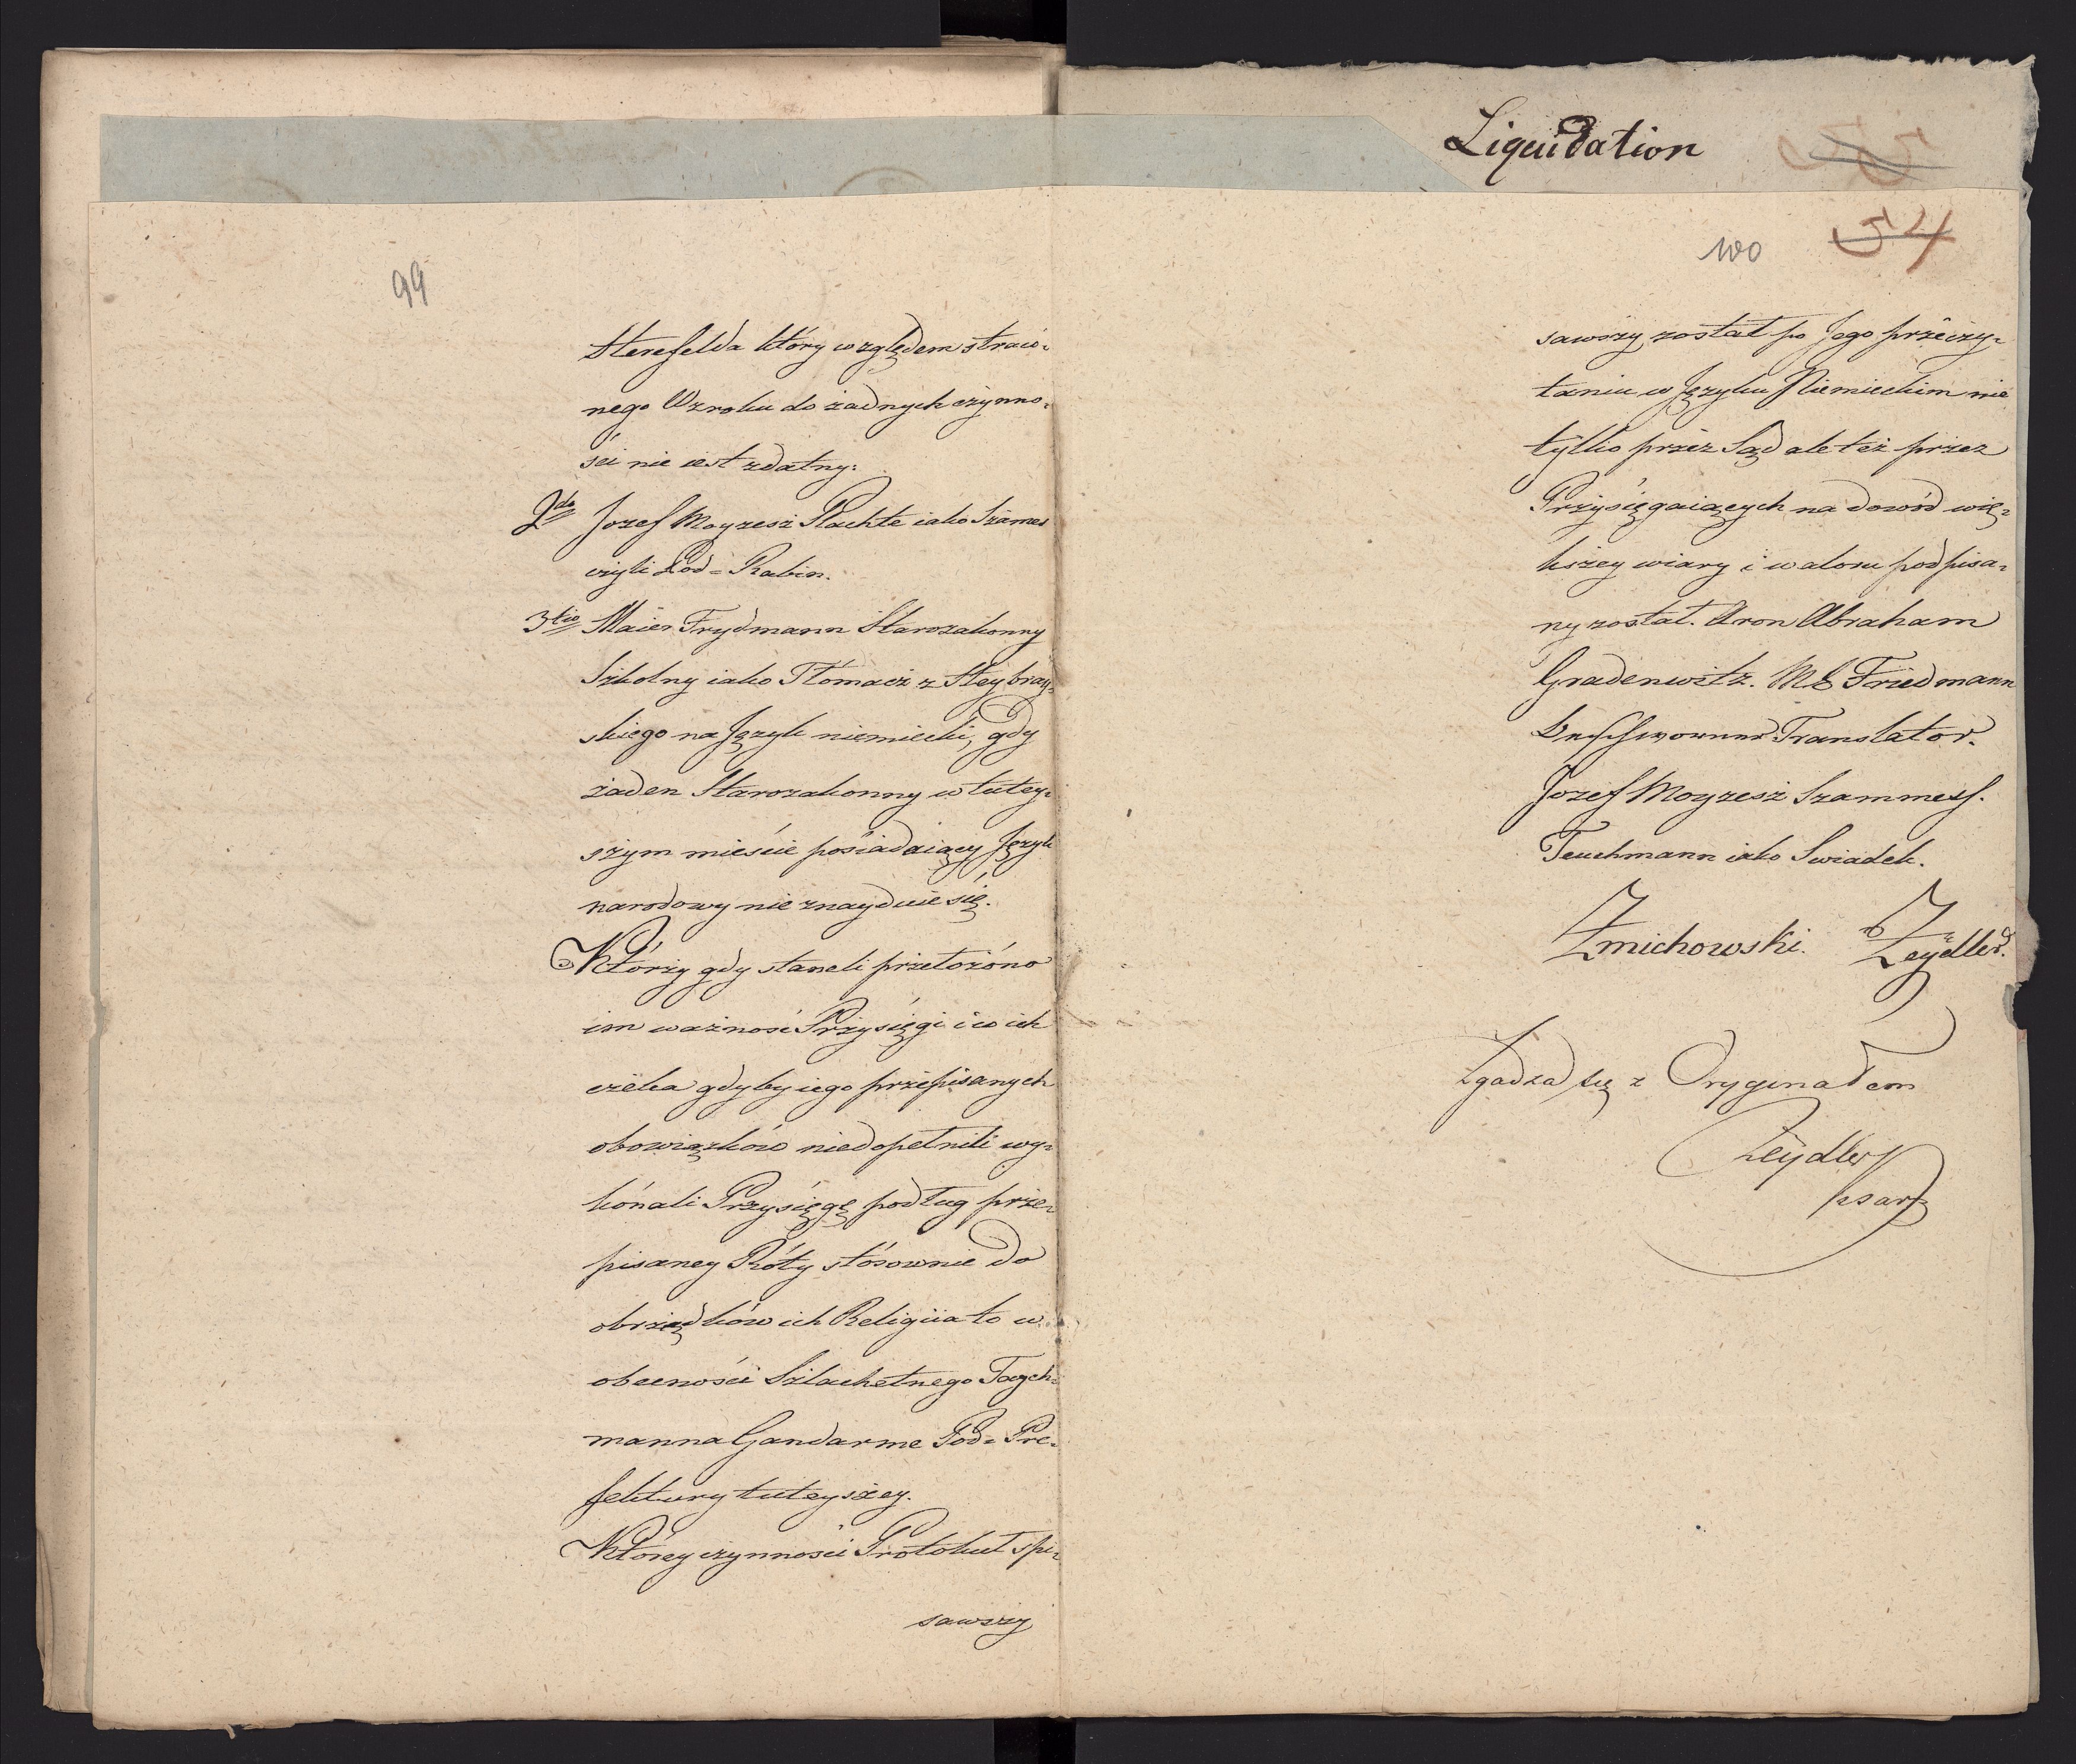 99
Sterefelda który względem straco=
nego Wzroku do żadnych czynno=
ści nie iest zdatny:
2do Jozef Moyzesz Plachte iako Szames
czyli Pod=Rabin.
3tio Maier Frydmann Starozakonny
Szkolny iako Tłómacz z Heybray=
skiego na Język niemiecki, gdy
żaden Starozakonny w tutey=
szym mieście posiadaiący Język
narodowy nie znayduie się.
Którzy gdy staneli przełożóno
im ważność Przysięgi i w ich
gdyby iego przepisanych
obowiązków niedopełnili wy=
kónali Przysięgę podług prze=
pisaney Róty stósownie do
obrządków ich Religii a to w
obecności Szlachetnego Taych=
manna Gandarme Pod=Pre=
fektury tuteyszey.
Którey czynności Protokuł spi=
sawszy
Liquidation
100 54
sawszy został po Jego przeczy=
taniu w Języku Niemieckim nie
tylko przez Sąd ale też przez
Przysięgaiących na dowód wię=
kszey wiary i waloru podpisa=
ny został. Aron Abraham
Gradenwitz. M E Friedmann
Translator.
Jozef Moyzesz Szammess.
Teuchmann iako Swiadek.
Zmichowski. Zeydler.
Zgadza się z Oryginałem
Zeydler
psarz